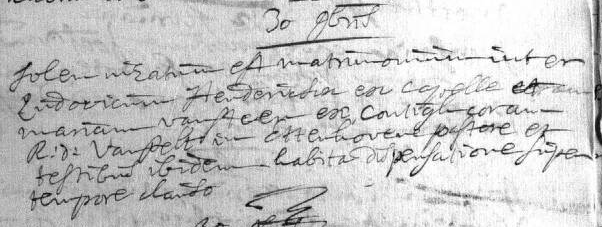 30 9bris
solemnizatum est matrimonium inter
Ludovicum Hendericksa ex Capelle et
mariam vansteen ex contigh coram
R: d: vanpelt in ettenhoven pastore et
testibus ibidem habita dispensatione super
tempore clauso